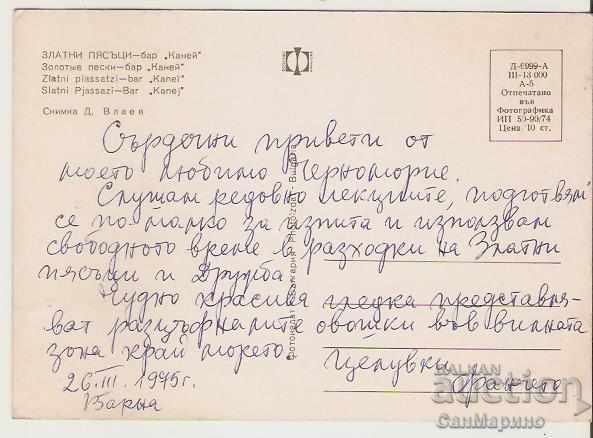 ЗЛАТНИ ПЯСЪЦИ—бар „Каней"
Золотые пески—бар „Каней"
Zlatni piassatzi—bar "Kanei"
Slatni Pjassazi—Bar "Kanej"
Снимка Д. Влаев
Д-6999-А
III-13 000
А-5
Отпечатано
във
Фотографика
ИП 50-90/74
Цена 10 ст.
Сърдечни привети от
моето любимо Черноморие.
Слушам редовно лекциите, подготвям
се по-малко за изпита и използвам
свободното време в разходки на Златни
пясъци и Дружба
Чудно красива гледка представля-
ват разцъфналите овошки във вилната
зона край морето
Целувки
26.III. 1975г.
Варна
Фотоиздат България Photoizdat Bulgaria
BALKAN
auction
СанМарино